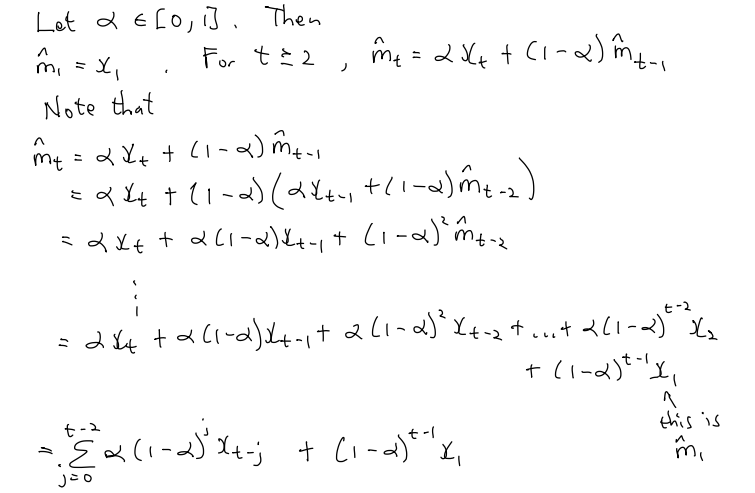 Let α ∈ [0, 1]. Then
m̂₁ = x₁ . For t ≥ 2 , m̂ₜ = α xₜ + (1-α) m̂ₜ₋₁
Note that
m̂ₜ = α xₜ + (1-α) m̂ₜ₋₁
= α xₜ + (1-α)(α xₜ₋₁ + (1-α) m̂ₜ₋₂)
= α xₜ + α(1-α)xₜ₋₁ + (1-α)² m̂ₜ₋₂
⋮
= α xₜ + α(1-α)xₜ₋₁ + α(1-α)² xₜ₋₂ + ... + α(1-α)^{t-2} x₂
+ (1-α)^{t-1} x₁
^
this is
m̂₁
= ∑_{j=0}^{t-2} α(1-α)^j x_{t-j} + (1-α)^{t-1} x₁